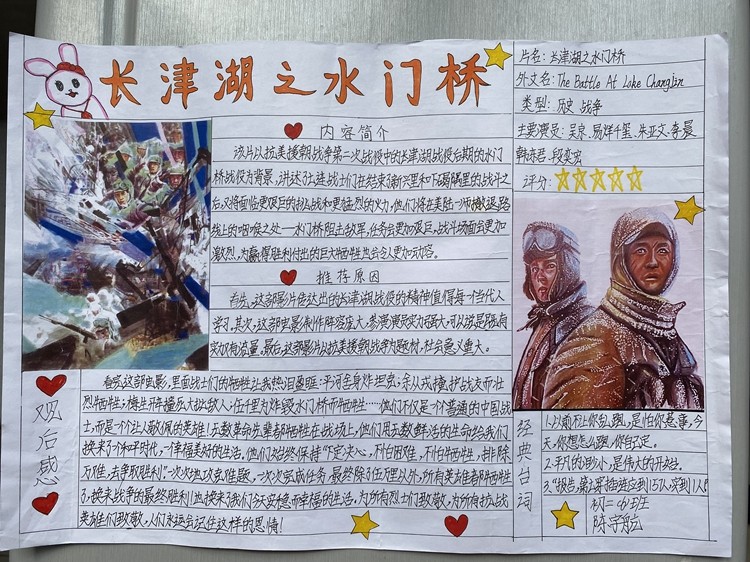 长津湖之水门桥
片名:长津湖之水门桥
外文名:The Battle At Lake Changjin
类型:历史 战争
主要演员:吴京.易烊千玺.朱亚文.李晨
韩东君.段奕宏
评分:
内容简介
该片以抗美援朝战争第二次战役中的长津湖战役后期的水门
桥战役为背景,讲述了七连战士们在结束了新兴里和下碣隅里的战斗之
后,又将面临更艰巨的挑战和更猛烈的火力,他们将在美陆一师撤退路
线上的咽喉之处——水门桥阻击敌军,任务会更加艰巨,战斗场面会更加
激烈,为赢得胜利付出的巨大牺牲也会令人更加动容。
推荐原因
首先,这部影片传达出的长津湖战役的精神值得每一个当代人
学习。其次,这部电影制作阵容庞大,参演演员实力强大,可以说是既有
实力又有流量。最后,这部影片以抗美援朝战争为题材,社会意义重大。
观后感
看完这部电影,里面战士们的牺牲让我热泪盈眶:平河全身炸
余从戎掩护战友而壮
烈牺牲;梅生
伍千里为炸毁水门桥而牺牲……他们不仅是一个个普通的中国战
士,而是一个个让人敬佩的英雄!无数革命先辈都牺牲在战场上,他们用无数鲜活的生命给我们
换来了个和平时代,一个幸福美好的生活,他们始终保持“下定决心,不怕困难,不怕牺牲,排除
万难,去争取胜利”。一次次地攻克难题,一次次完成任务,最终除了伍万里以外,所有英雄者都牺牲
了,换来战争的最终胜利!也换来了我们今天安稳而幸福的生活,为所有烈士们致敬,为所有抗战
英雄们致敬,人们永远会记住这样的恩情!
经典台词
1.以前不让你乱跑,是怕你惹事,今
天,你想怎么跑,你自己定。
2.平凡的渺小,是伟大的开始。
3.“报告,第七穿插连应到157人,实到1人”
初二
班
陈宇航